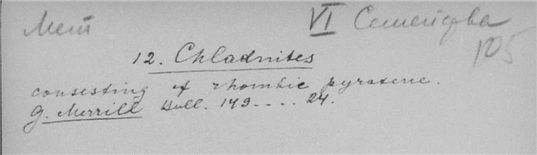 Мет VI Семейства
105
12. Chladnites
consesting of rhombic pyroxene.
G. Merrill Bull. 149 .... 24.